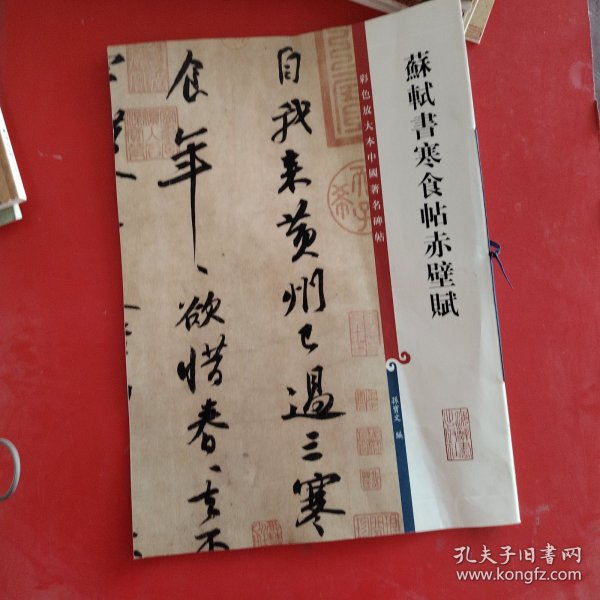 蘇軾書寒食帖赤壁賦
彩色放大本中國著名碑帖
孫寶文 編
自我来黄州已過三寒
食年〻欲惜春〻去不
孔夫子旧书网
www.kongfz.com